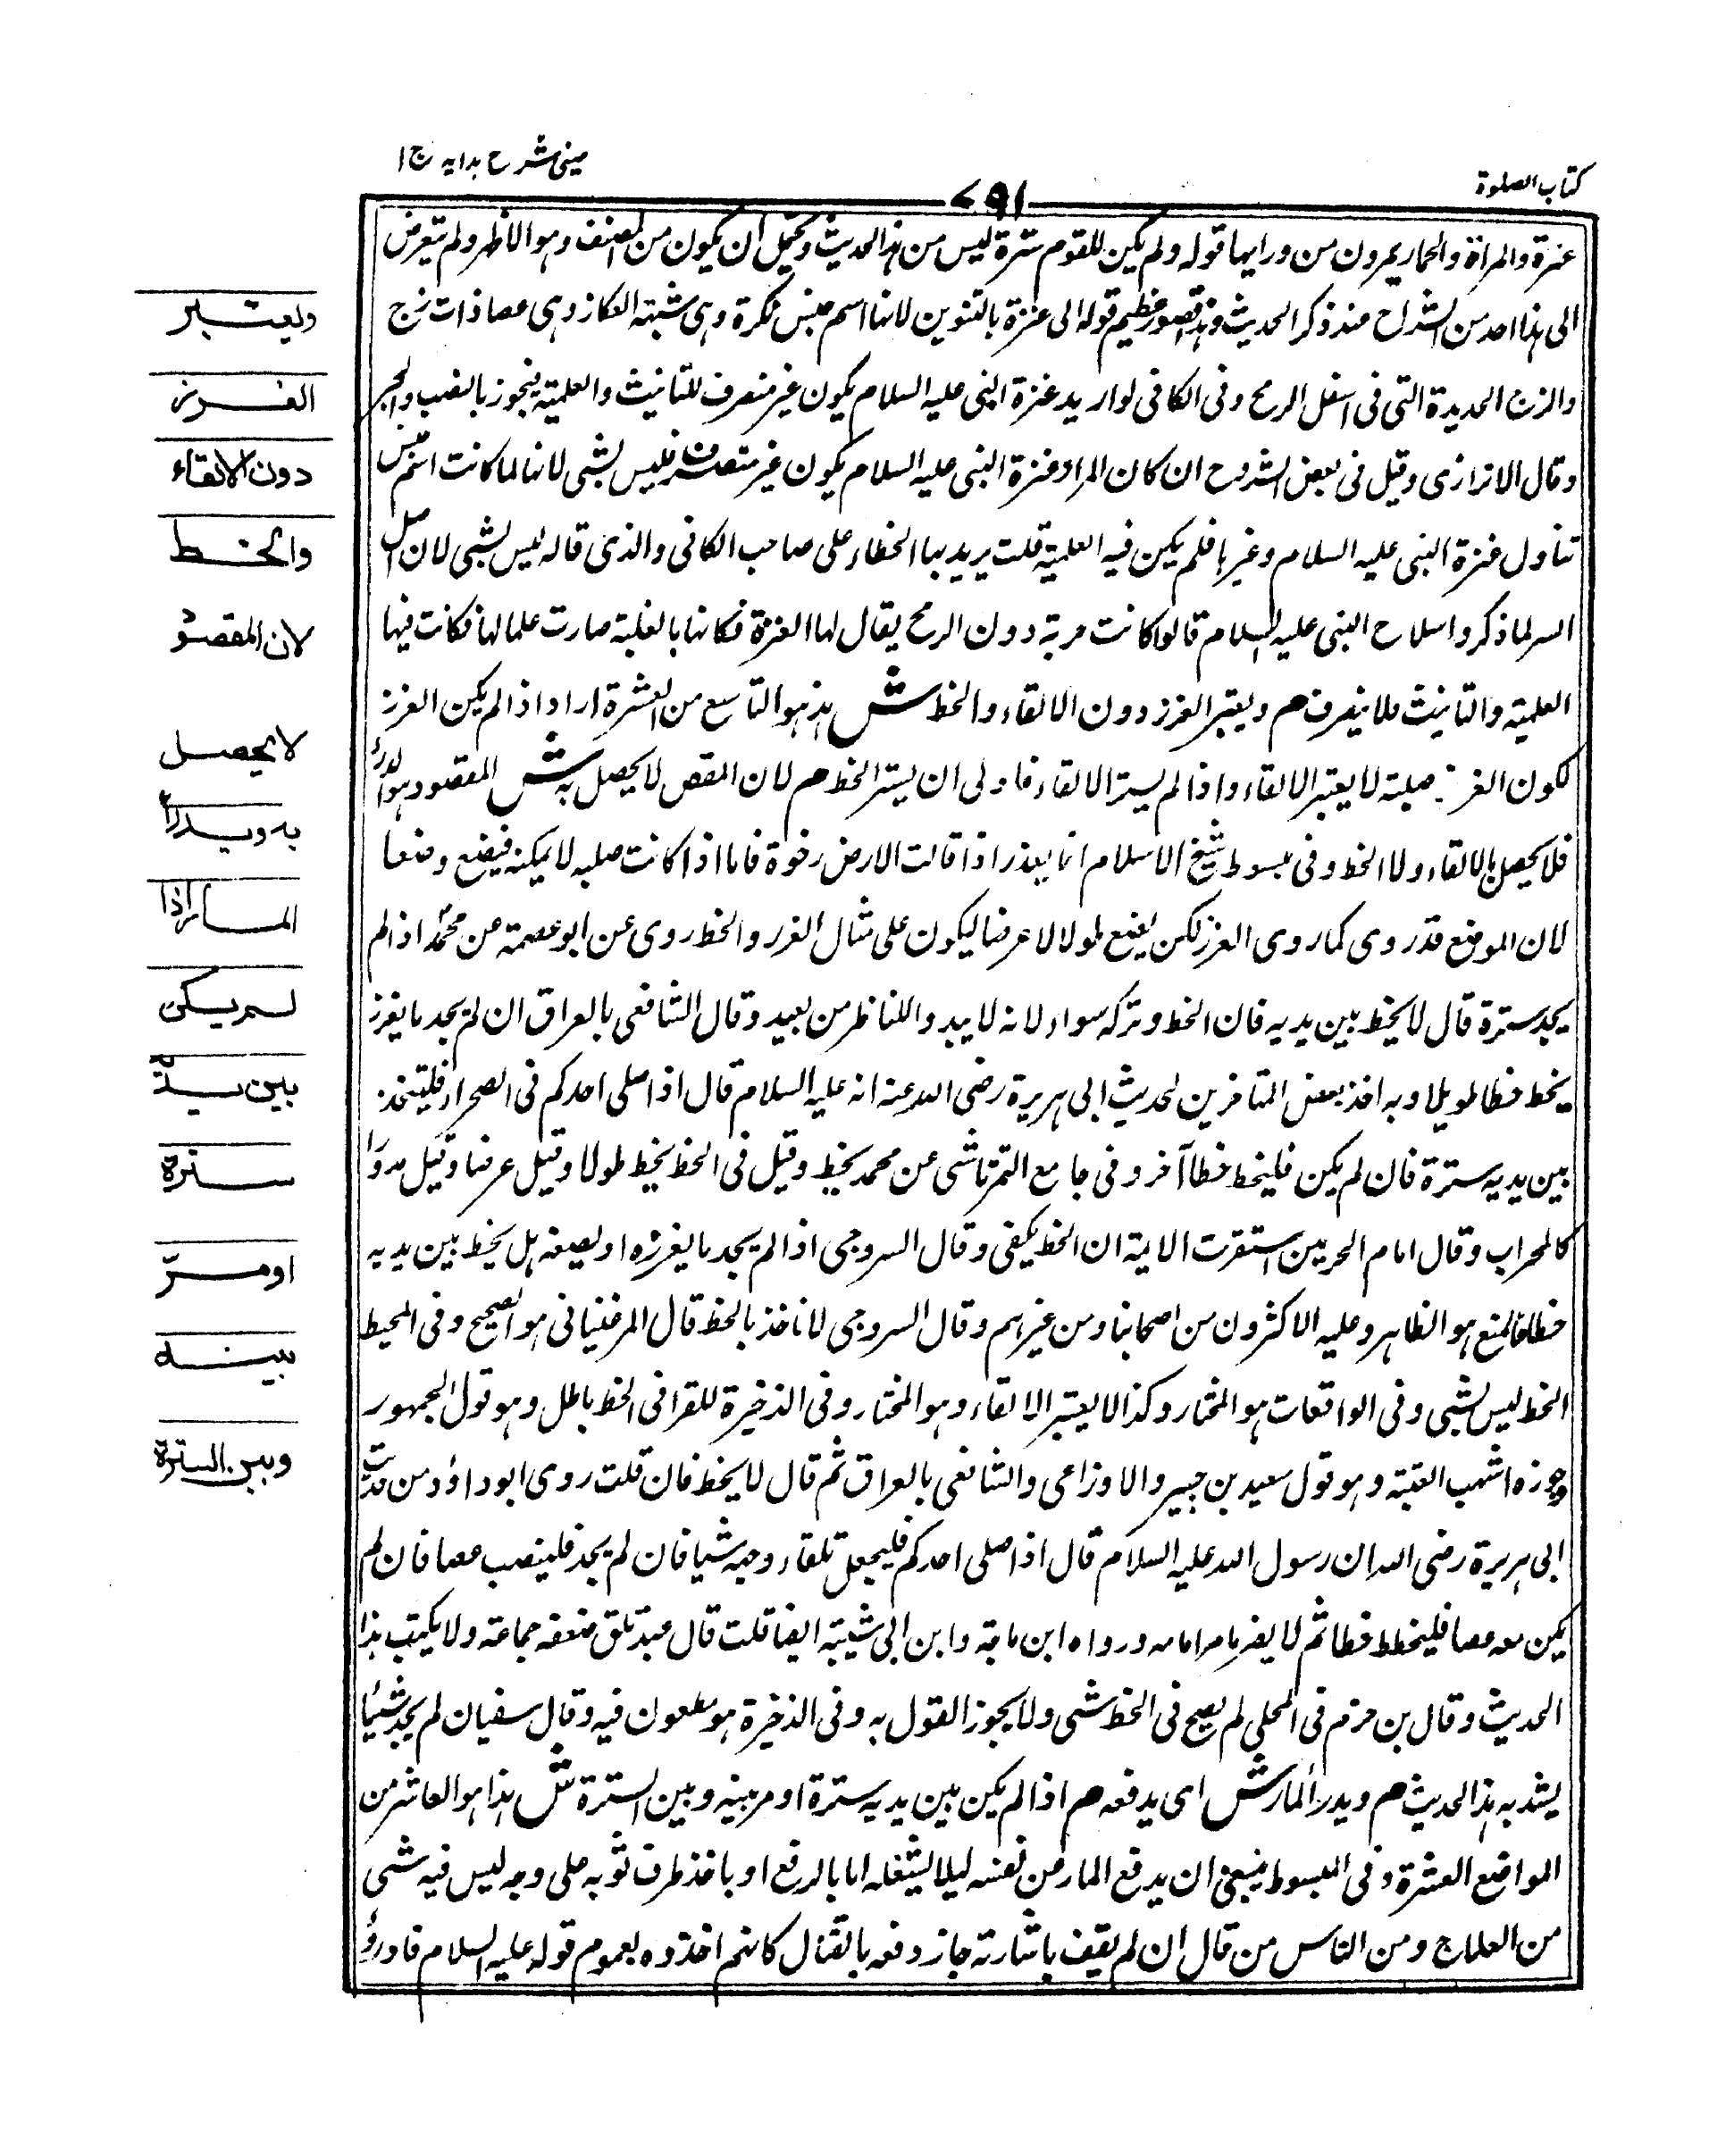 كتاب الصلوة
٧٩١
عينى شرح هدايه ج ١
عنزة والمراة والحمار يمرون من ورايها قوله ولم يكن للقوم سترة ليس من هذا الحديث ويحتمل ان يكون من المصنف وهو الاظهر ولم يتعرض
الى هذا احد من الشراح عند ذكر الحديث وهذا قصور عظيم قوله الى عنزة بالتنوين لانها اسم جنس نكرة وهى شبهة العكاز وهى عصا ذات زج
والزج الحديدة التى فى اسفل الرمح وفى الكافى لو اريد عنزة النبى عليه السلام يكون غير منصرف للتانيث والعلمية فيجوز بالنصب والجر
وقال الاترازى وقيل فى بعض الشروح ان كان المراد عنزة النبى عليه السلام يكون غير منصرف فليس بشى لانها لما كانت اسم جنس
تناول عنزة النبى عليه السلام وغيرها فلم يكن فيه العلمية قلت يريد بها الخطاء على صاحب الكافى والذى قاله ليس بشى لان اهل
السير لما ذكروا سلاح النبى عليه السلام قالوا كانت حربة دون الرمح يقال لها العنزة فكانها بالغلبة صارت علما لها فكانت فيها
العلمية والتانيث فلا ينصرف م ويعتبر الغرز دون الالقاء والخط ش هذا هو التاسع من العشرة اراد اذا لم يكن الغرز
لكون الغرز صلبة لا يعتبر الالقاء واذا لم يستر الالقاء فاولى ان يستر الخط م لان المقص لا يحصل به ش المقصود هو الدرأ
فلا يحصل بالالقاء ولا الخط وفى مبسوط شيخ الاسلام انما يعذر اذا قالت الارض رخوة فاما اذا كانت صلبه لا يمكنه فيضع وضعا
لان الموضع قد روى كما روى الغرز لكن يضع طولا لا عرضا ليكون على مثال الغرز والخط روى عن ابو عصمة عن محمد اذا لم
يجد سترة قال لا يخط بين يديه فان الخط وتركه سواء لانه لا يبدو للناظر من بعيد وقال الشافعى بالعراق ان لم يجد ما يغرز
يخط خطا طويلا وبه اخذ بعض المتاخرين لحديث ابى هريرة رضى الله عنه انه عليه السلام قال اذا صلى احدكم فى الصحراء فليتخذ
بين يديه سترة فان لم يكن فليخط خطا آخر وفى جامع التمرتاشى عن محمد يخط وقيل فى الخط يخط طولا وقيل عرضا وقيل مدورا
كالمحراب وقال امام الحرمين استقرت الايمة ان الخط يكفى وقال السروجى اذا لم يجد ما يغرزه او يضعه هل يخط بين يديه
خطا فالمنع هو الظاهر وعليه الاكثرون من اصحابنا ومن غيرهم وقال السروجى لا ناخذ بالخط قال المرغينانى هو الصحيح وفى المحيط
الخط ليس بشى وفى الواقعات هو المختار وكذا لا يعتبر الالقاء وهو المختار وفى الذخيرة للقرافى الخط باطل وهو قول الجمهور
وجوزه اشهب العتبة وهو قول سعيد بن جبير والاوزاعى والشافعى بالعراق ثم قال لا يخط فان قلت روى ابو داؤد من حديث
ابى هريرة رضى الله ان رسول الله عليه السلام قال اذا صلى احدكم فليجعل تلقاء وجهه شيا فان لم يجد فلينصب عصا فان لم
يكن معه عصا فليخطط خطا ثم لا يضره ما مر امامه ورواه ابن ماجة وابن ابى شيبة ايضا قلت قال عبد الحق ضعفه جماعة ولا يكتب هذا
الحديث وقال بن حزم فى المحلى لم يصح فى الخط شى ولا يجوز القول به وفى الذخيرة هو مطعون فيه وقال سفيان لم يجد شيئا
يشد به هذا الحديث م ويدرأ المار ش اى يدفعه م اذا لم يكن بين يديه سترة او مر بينه وبين السترة ش هذا هو العاشر من
المواضع العشرة وفى المبسوط ينبغى ان يدفع المار من نفسه ليلا يشغله اما بالرفع او باخذ طرف ثوبه على وجه ليس فيه شى
من العلاج ومن الناس من قال ان لم يقف باشارته جاز دفعه بالقتال كانهم اخذوه بعموم قوله عليه السلام فادرؤ
ويعتبر
الغرز
دون الالقاء
والخط
لان المقصود
لا يحصل
به ويدرأ
المار اذا
لم يكن
بين يديه
سترة
او مرّ
بينه
وبين السترة